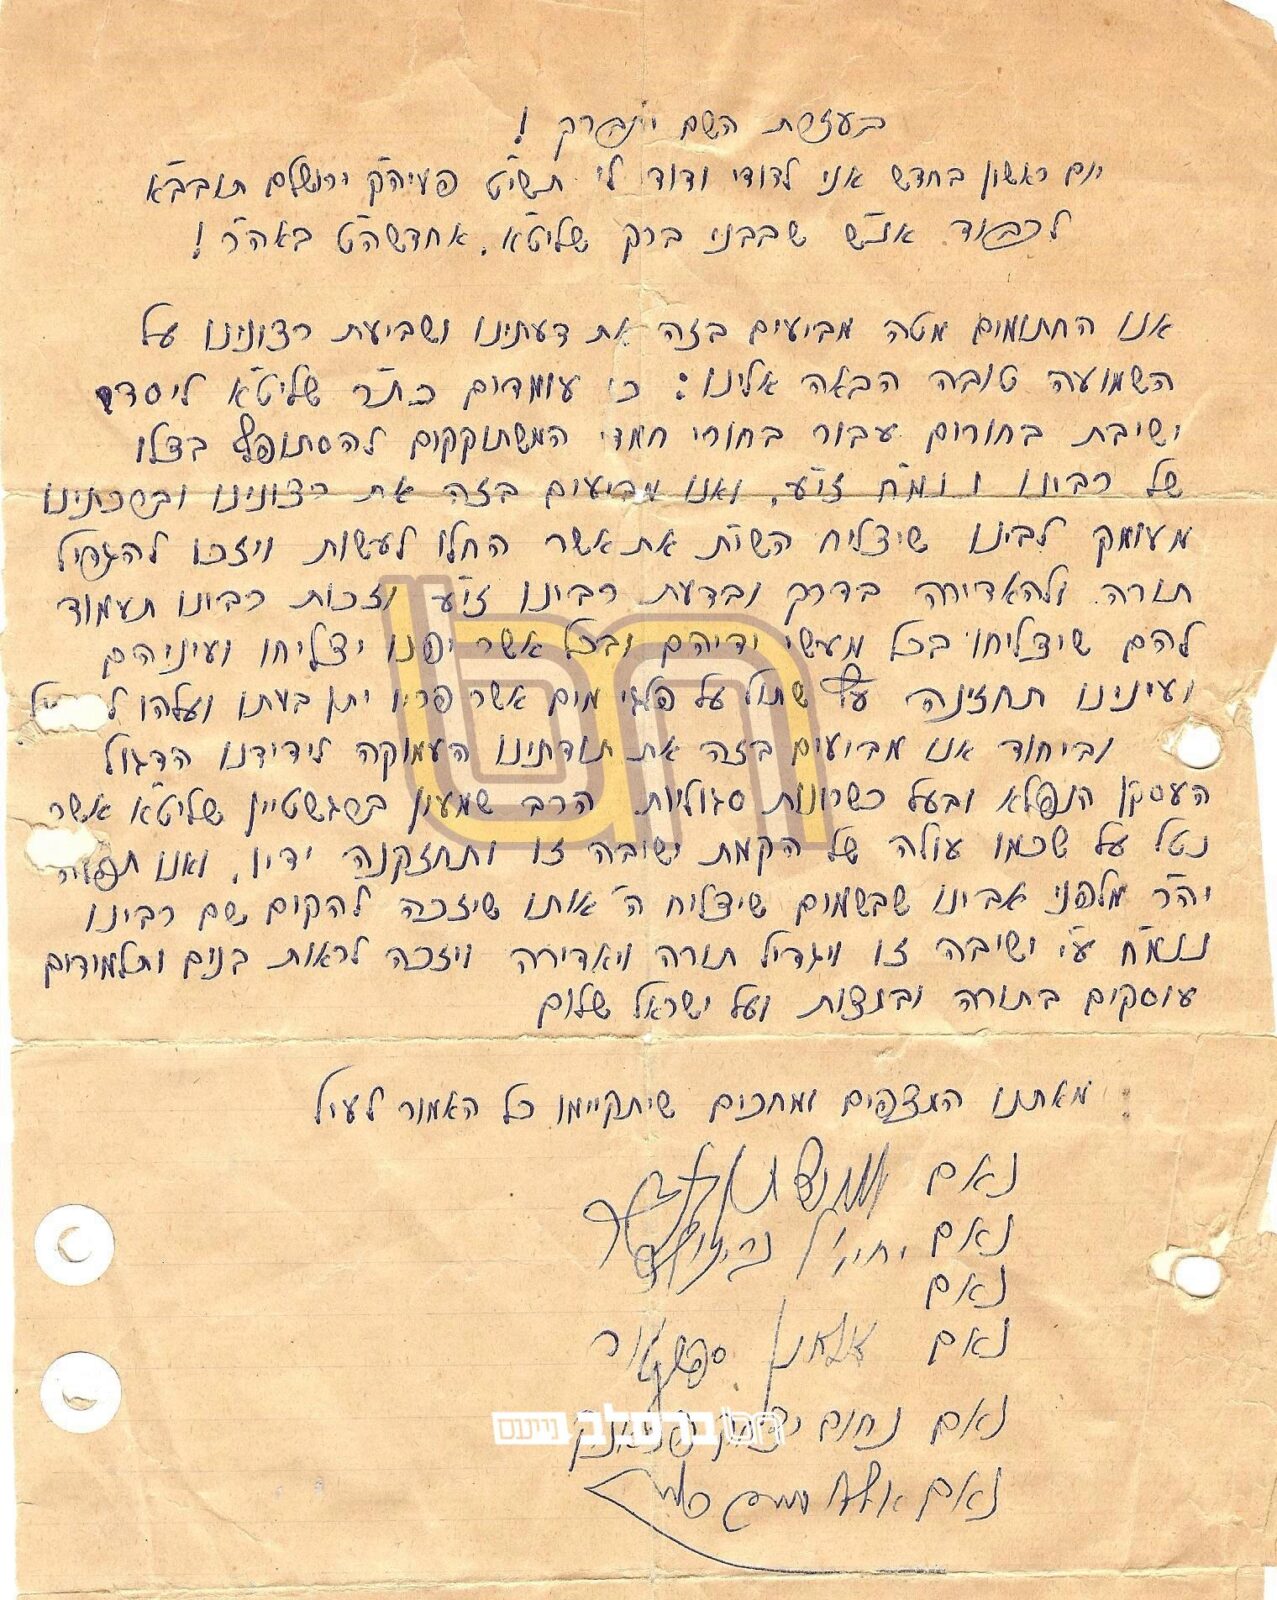 בעזרת השם יתברך !
יום ראשון בחדש אני לדודי ודוד לי תשי"ט פעיה"ק ירושלם תובב"א
לכבוד אנ"ש שבבני ברק שליט"א. אחדשה"ט באה"ר !
אנו החתומים מטה מביעים בזה את דעתינו ושביעת רצונינו על
השמועה טובה הבאה אלינו: כי עומדים כת"ר שליט"א ליסד
ישיבת בחורים עבור בחורי חמד המשתוקקים להסתופף בצלו
של רבינו ננמ"ח זי"ע, ואנו מביעים בזה את רצונינו ובשכתינו
מעומק לבינו שיצליח השי"ת את אשר החלו לעשות ויזכו להגדיל
תורה ולהאדירה בדרך ובדעת רבינו זי"ע וזכות רבינו תעמוד
להם שיצליחו בכל מעשי ידיהם ובכל אשר יפנו יצליחו ועיניהם
ועינינו תחזינה עץ שתול על פלגי מים אשר פריו יתן בעתו ועלהו ל
וביחוד אנו מביעים בזה את תודתינו העמוקה לידידנו הדגול
העסקן הנפלא ובעל כשרונות סגוליות הרב שמעון בערגשטיין שליט"א אשר
נטל על שכמו עולה של הקמת ישיבה זו ותחזקנה ידיו, ואנו תפלה
יה"ר מלפני אבינו שבשמים שיצליח ה' אותו שיזכה להקים שם רבינו
ננמ"ח ע"י ישיבה זו ויגדיל תורה ויאדירה ויזכה לראות בנים ותלמידים
עוסקים בתורה ובמצות ועל ישראל שלום
מאתנו המצפים ומחכים שיתקיימו כל האמור לעיל
נאם
נאם יחיאל
נאם
נאם אלחנן ספקטור
נאם נחום יצחק פראנק
נאם
bn
ברסלב נייעס